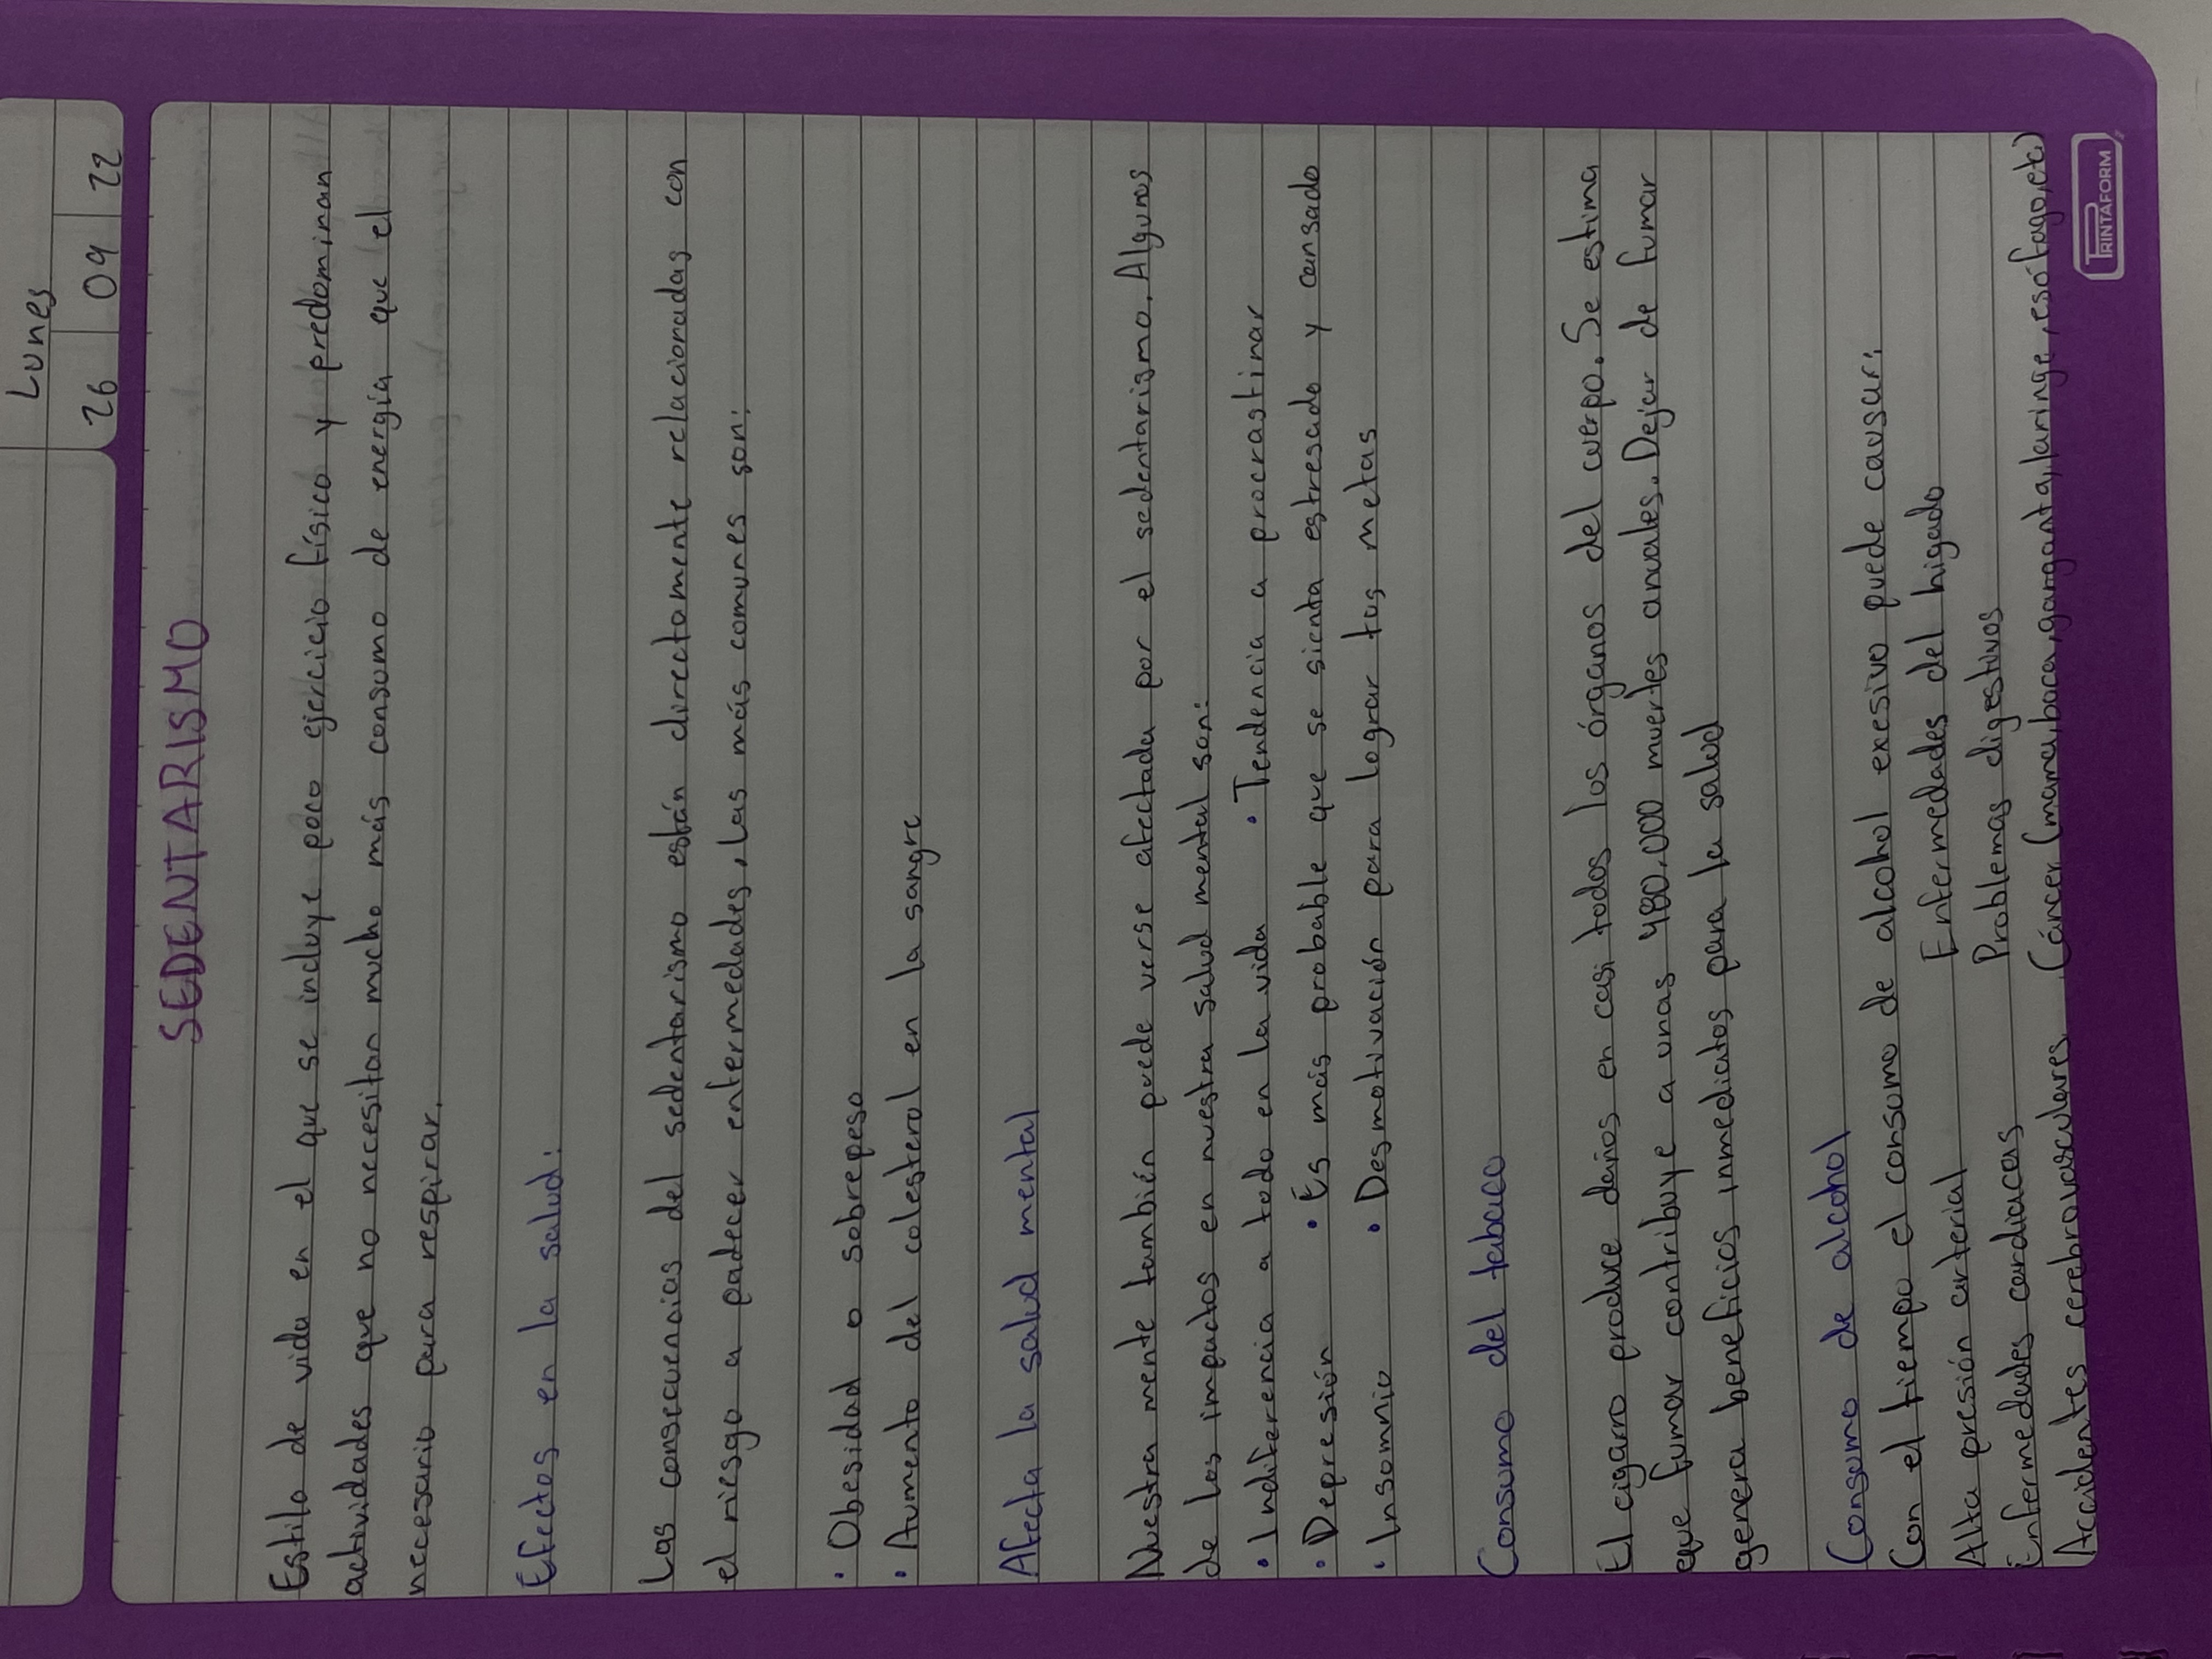 Lunes
26 09 22
SEDENTARISMO
Estilo de vida en el que se incluye poco ejercicio físico y predominan
actividades que no necesitan mucho más consumo de energía que el
necesario para respirar.
Efectos en la salud:
Las consecuencias del sedentarismo están directamente relacionadas con
el riesgo a padecer enfermedades, las más comunes son:
• Obesidad o sobrepeso
• Aumento del colesterol en la sangre
Afecta la salud mental
Nuestra mente también puede verse afectada por el sedentarismo. Algunos
de los impactos en nuestra salud mental son:
• Indiferencia a todo en la vida • Tendencia a procrastinar
• Depresión • Es más probable que se sienta estresado y cansado
• Insomnio • Desmotivación para lograr tus metas
Consumo del tabaco
El cigarro produce daños en casi todos los órganos del cuerpo. Se estima
que fumar contribuye a unas 480.000 muertes anuales. Dejar de fumar
genera beneficios inmediatos para la salud
Consumo de alcohol
Con el tiempo el consumo de alcohol exesivo puede causar:
Alta presión arterial Enfermedades del higado
Enfermedades cardiacas Problemas digestivos
Accidentes cerebrovasculares Cáncer (mama, boca, garganta, laringe, esófago, etc)
PRINTAFORM